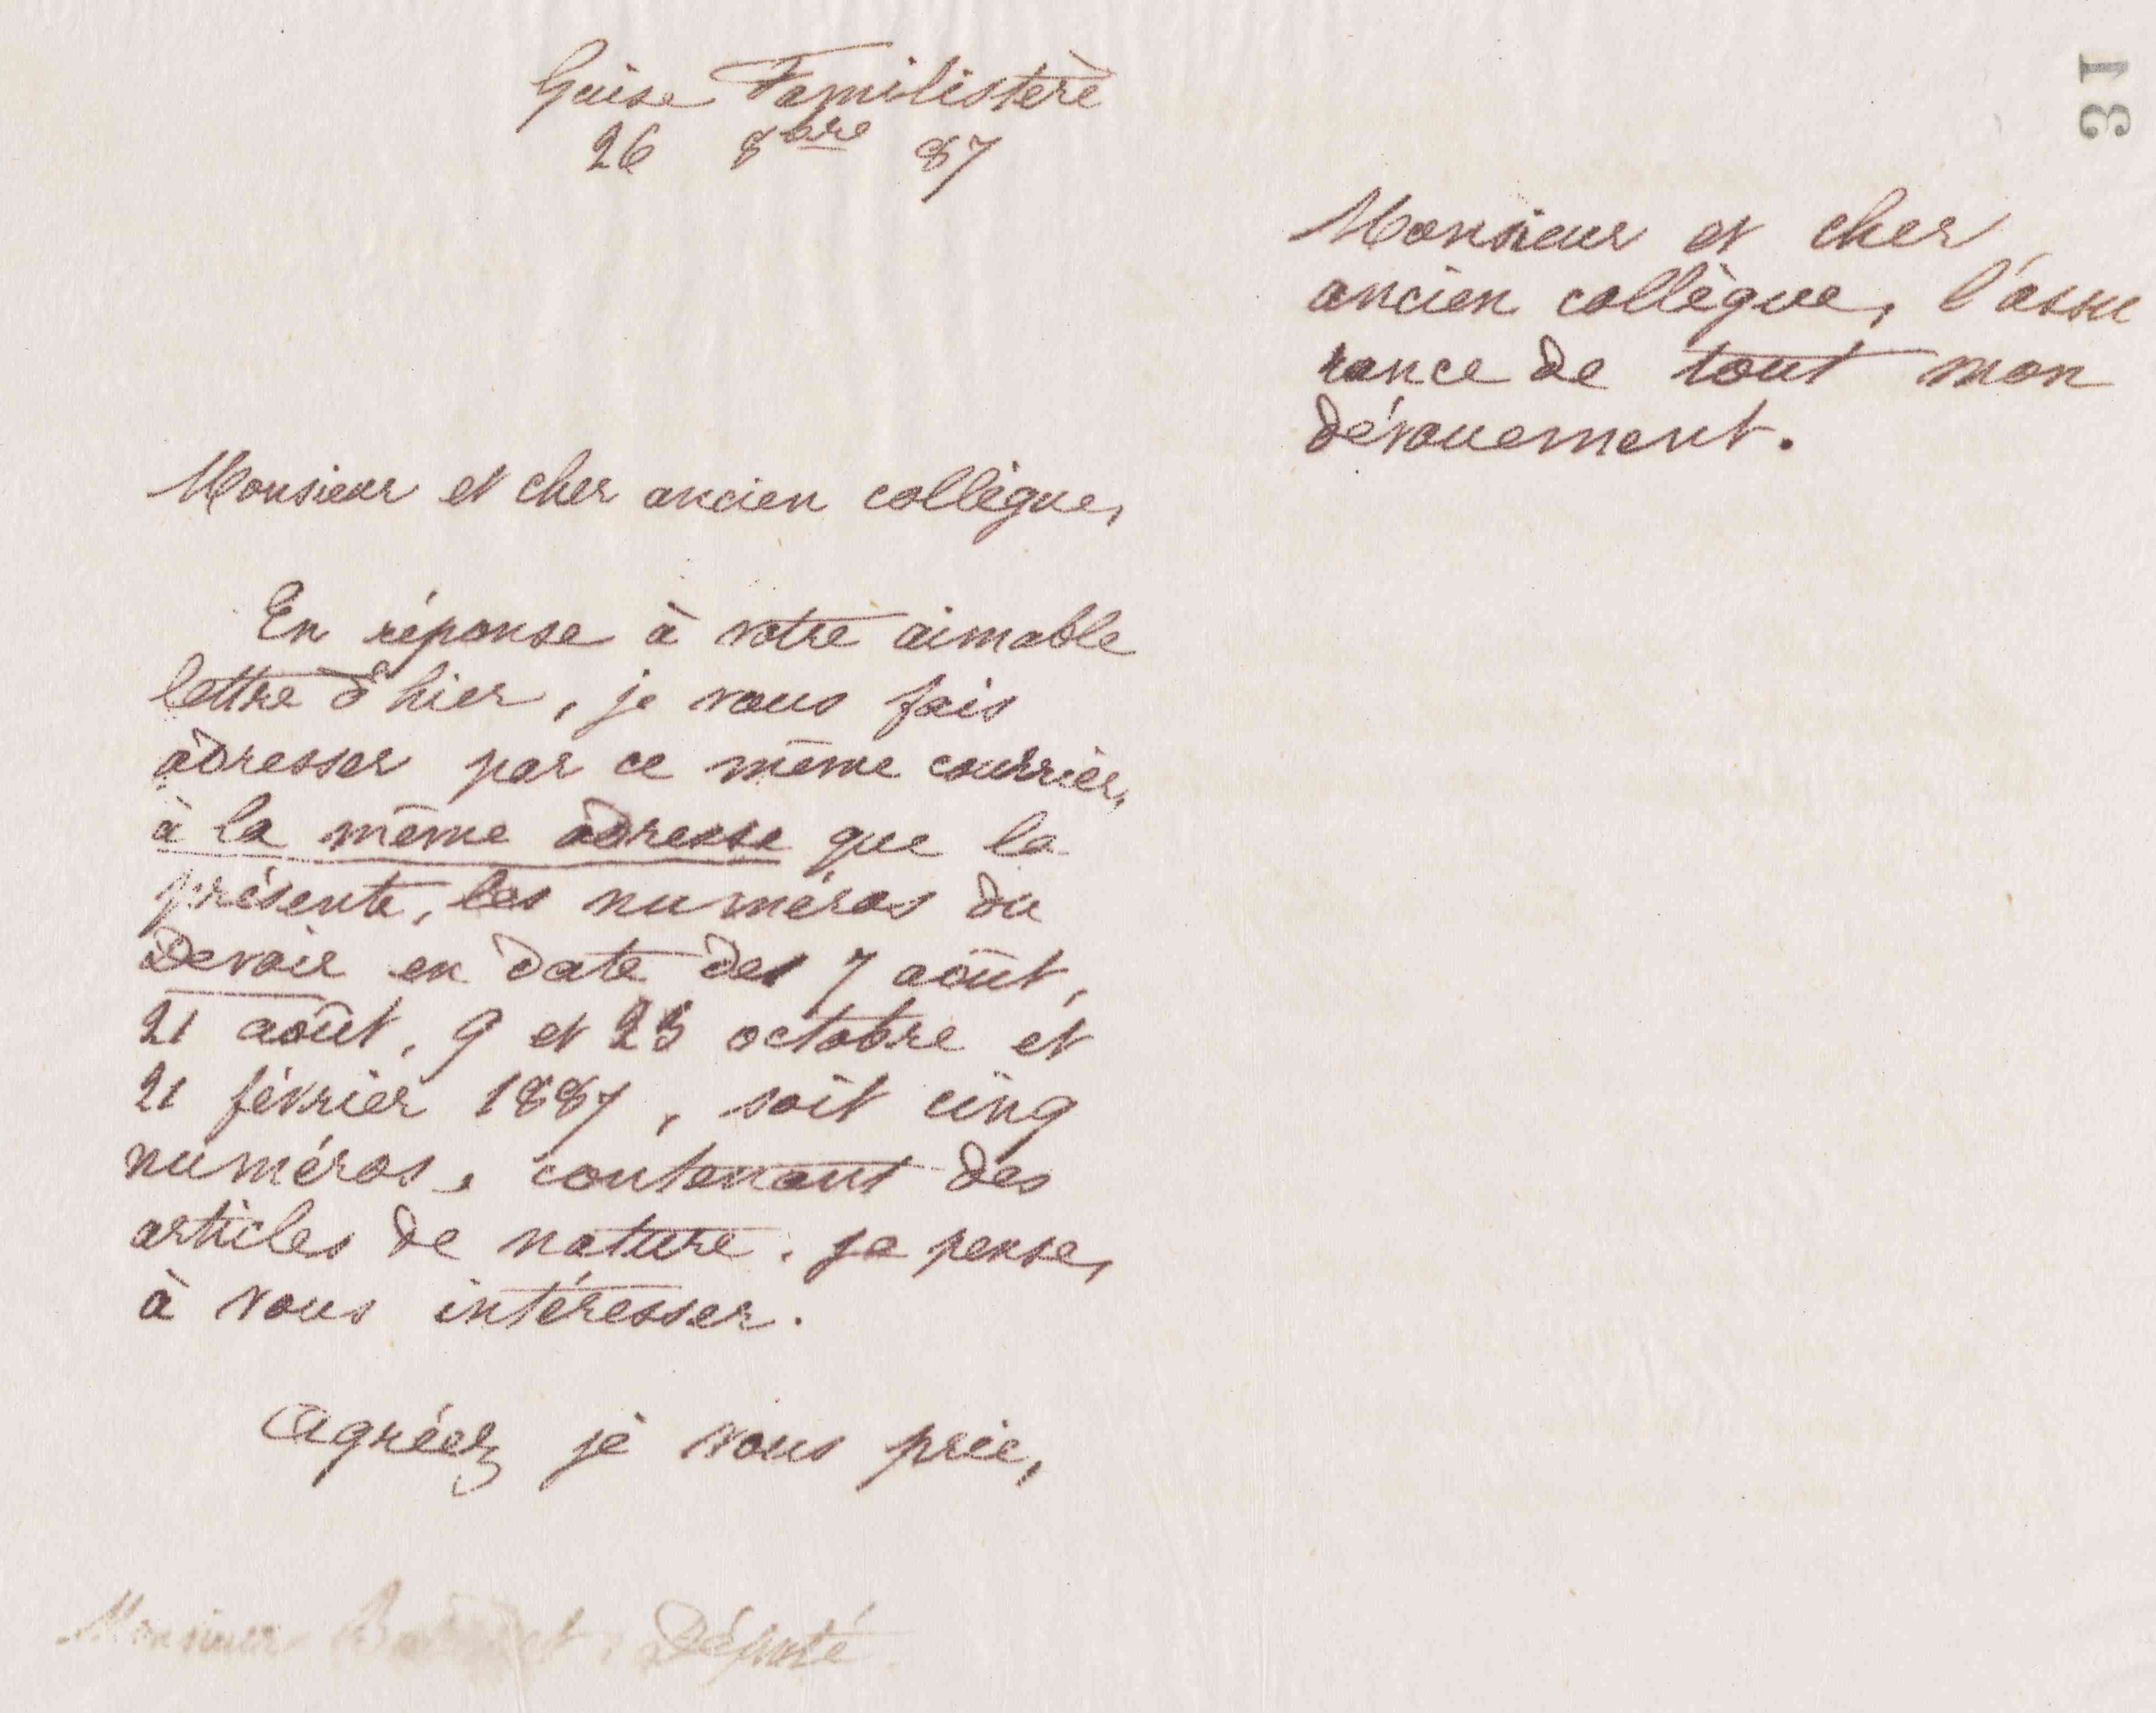 Guise Familistère
26 8bre 87
Monsieur et cher ancien collègue,
En réponse à votre aimable
lettre d'hier, je vous fais
adresser par ce même courrier,
à la même adresse que la
présente, les numéros du
Devoir en date des 7 août,
21 août, 9 et 23 octobre et
21 février 1887, soit cinq
numéros, contenant des
articles de nature, je pense,
à vous intéresser.
Agréez je vous prie,
Monsieur Député
31
Monsieur et cher
ancien collègue, l'assu
rance de tout mon
dévouement.